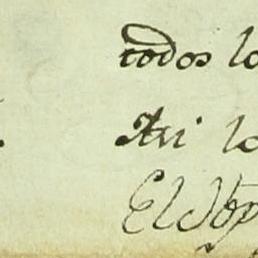 todos lo
Asi lo
El